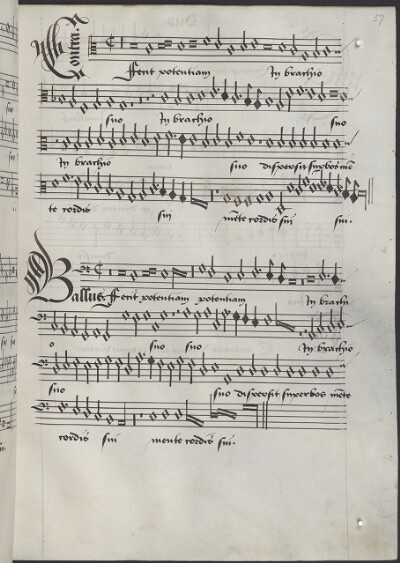 57
Contra.
Fecit potentiam In brachio
suo In brachio suo
In brachio suo dispersit superbos mēte
te cordis sui mēte cordis sui sui.
Bassus. Fecit potentiam potentiam In brachi
o suo suo In brachio
suo suo dispersit superbos mēte
cordis sui mente cordis sui.